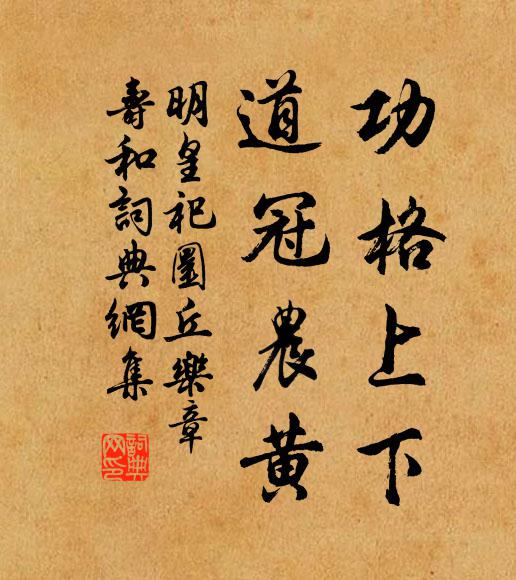 功格上下
道冠農黃
明皇祀圜丘樂章
壽和詞典網集
詞典网印